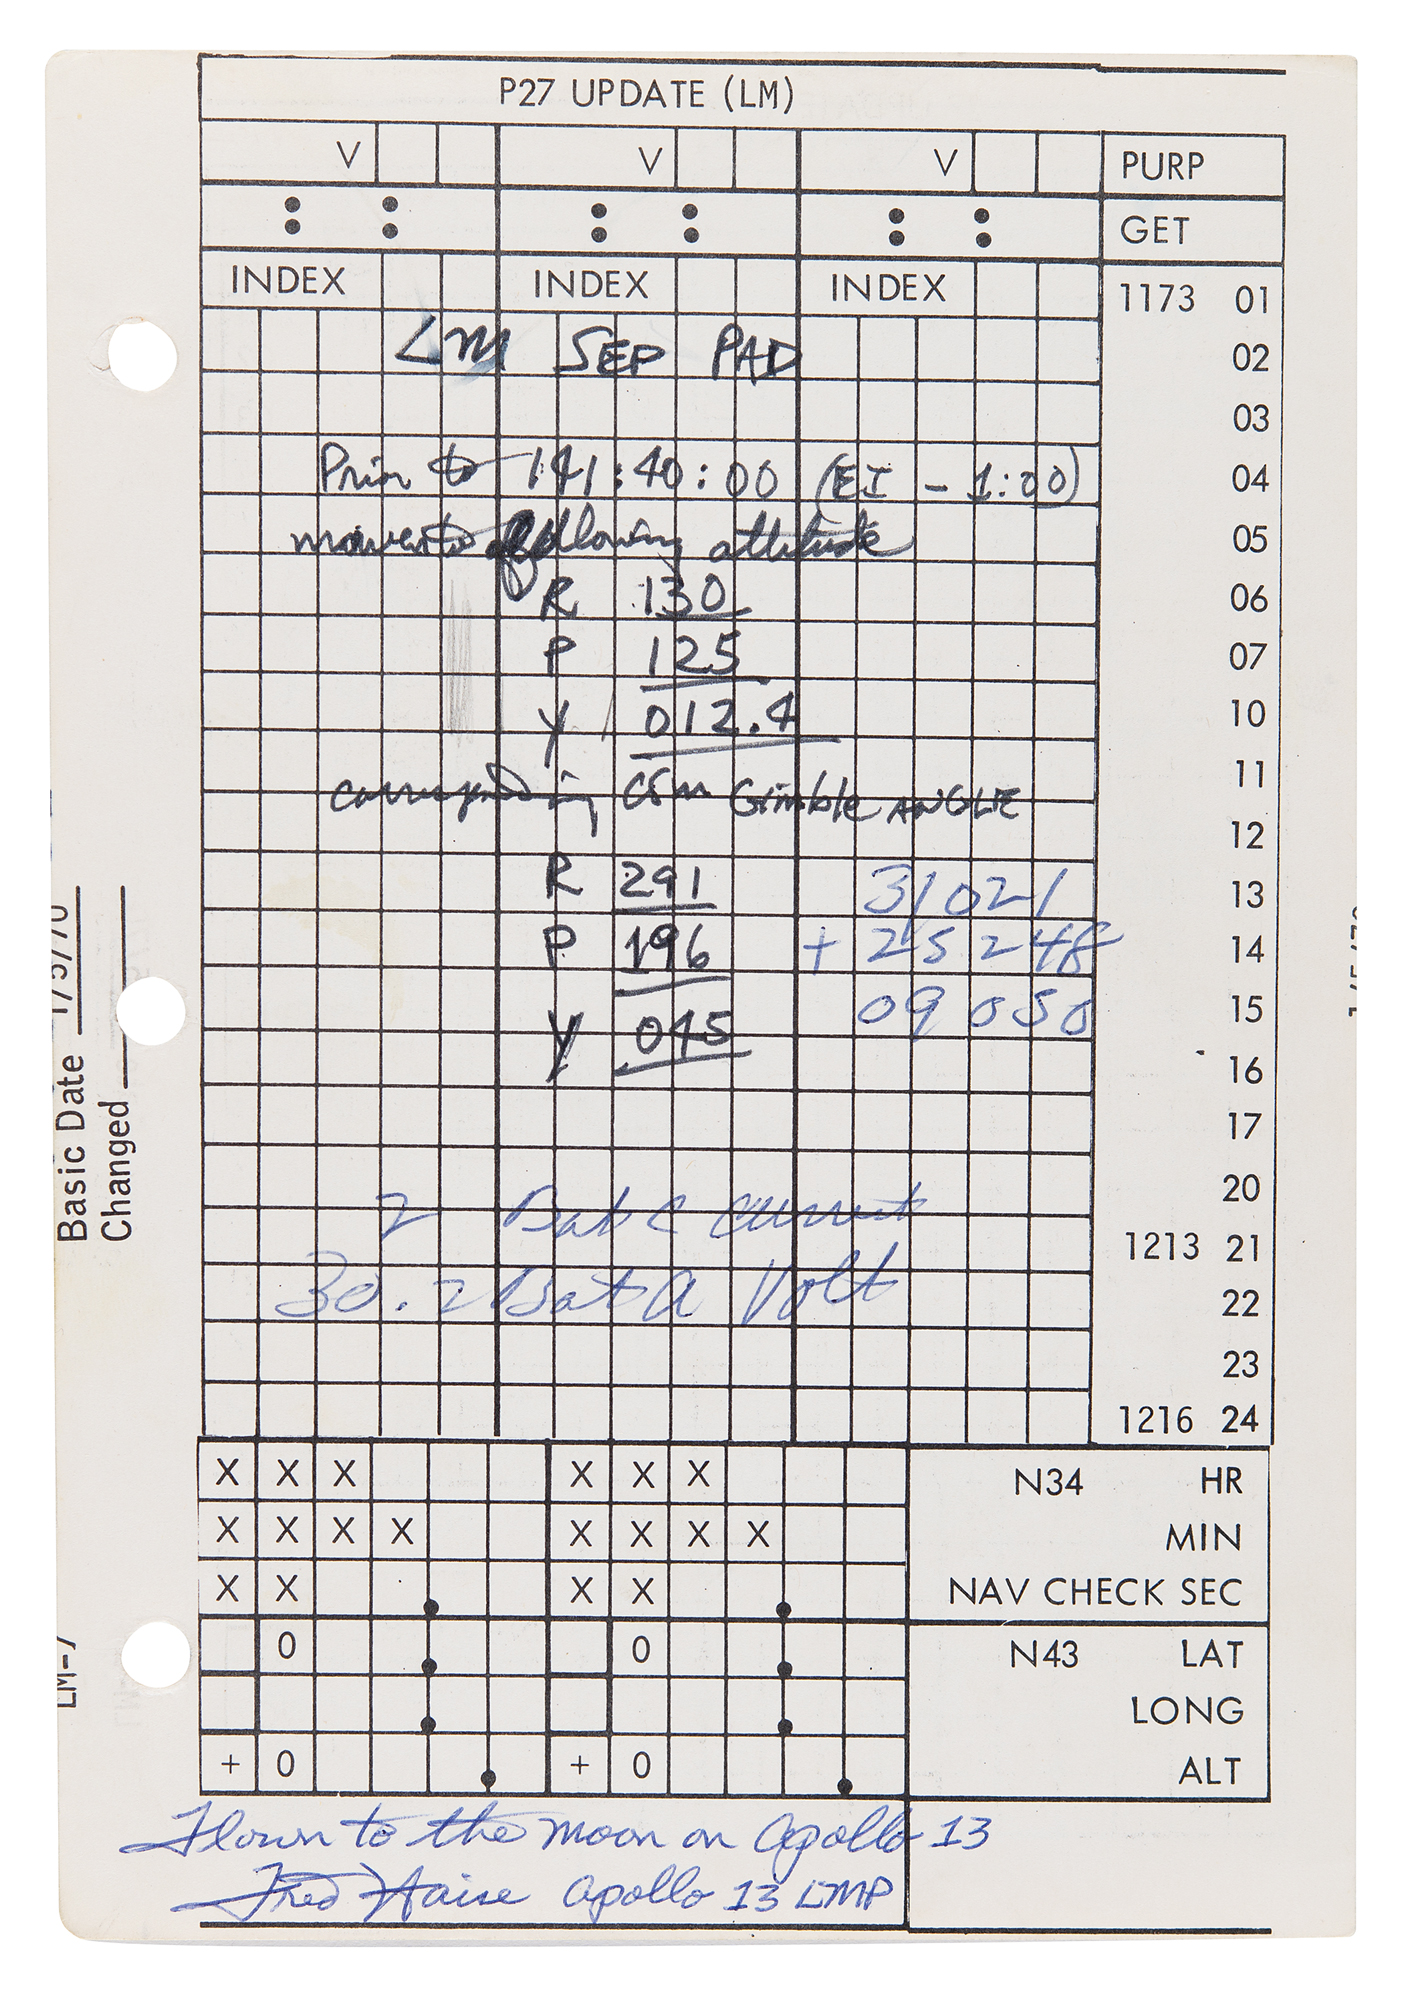 P27 UPDATE (LM)
V V V PURP
: : : : : : GET
INDEX INDEX INDEX 1173 01
LM SEP PAD 02
03
Prior to 141:40:00 (EI - 1:00) 04
maneuver to following attitude 05
R 130 06
P 125 07
Y 012.4 10
11
corresponding CSM Gimble ANGLE
12
R 291 31021 13
P 196 + 25248 14
Y 045 09050 15
16
17
2 Bat C current 20
1213 21
30.2 Bat A Volt 22
23
1216 24
X X X X X X N34 HR
X X X X X X X X MIN
X X . X X . NAV CHECK SEC
0 . 0 . N43 LAT
. . LONG
+ 0 . + 0 . ALT
Flown to the moon on Apollo 13
Fred Haise Apollo 13 LMP
Basic Date 1/5/70
Changed
LM-7